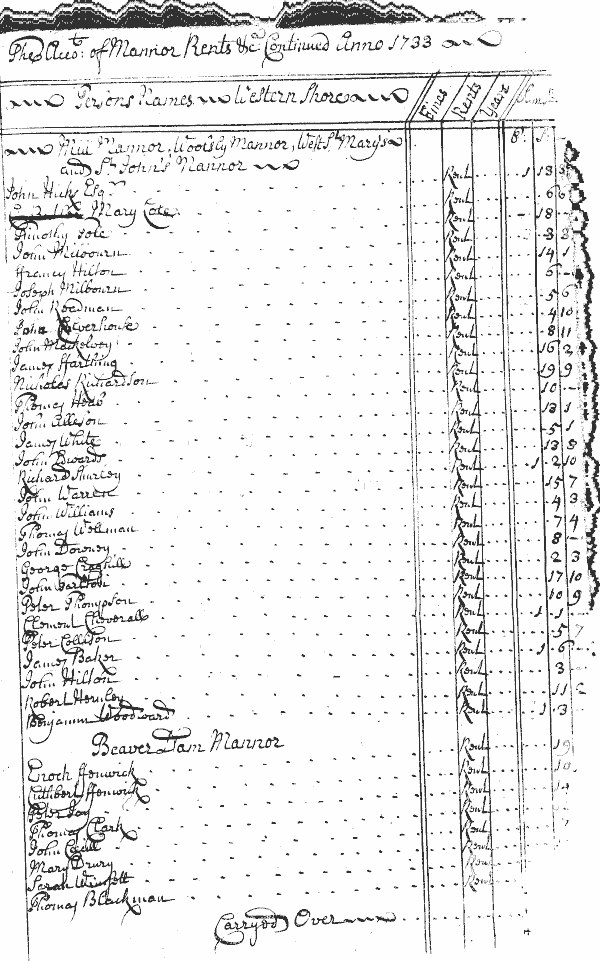 The Acct. of Mannor Rents &c. Continued Anno 1733
Persons Names Western Shore Fines Rents Years
Mill Mannor, Woolsy Mannor, West St. Marys
and St. John's Mannor
John Hicks Esqr. Rent 1 13
Mary Cole Rent 6
Timothy Tole Rent 18 -
John Milbourn Rent 3 3
Francy Hilton Rent 14 1
Joseph Milbourn Rent 6 -
John Readman Rent 5 6
John Rent 4 10
John Mackelvey Rent 8 11
James Farthing Rent 16 2
Nicholas Richardson Rent 19 9
Thomas Hebb Rent 10 -
John Allison Rent 13 1
James White Rent 5 1
John Edwards Rent 13 8
Richard Shurley Rent 1 2 10
John Warren Rent 15 7
John Williams Rent 4 3
Thomas Wellman Rent 7 4
John Downey Rent 8 -
George Rent 2 3
John Tarlton Rent 17 10
Peter Thompson Rent 10 9
Clement Cheverall Rent 1 1
Peter Collison Rent 5 7
James Baker Rent 1 6 -
John Hilton Rent 3
Robert Hernley Rent 11
Benjamin Woodward Rent 1 3
Beaver Dam Mannor
Enoch Fenwick Rent 19
Cuthbert Fenwick Rent 10
Peter Joy Rent
Thomas Clark Rent
John Cecill Rent
Mary Drury Rent
Sarah Rent
Thomas Blackman Rent
Carryed Over